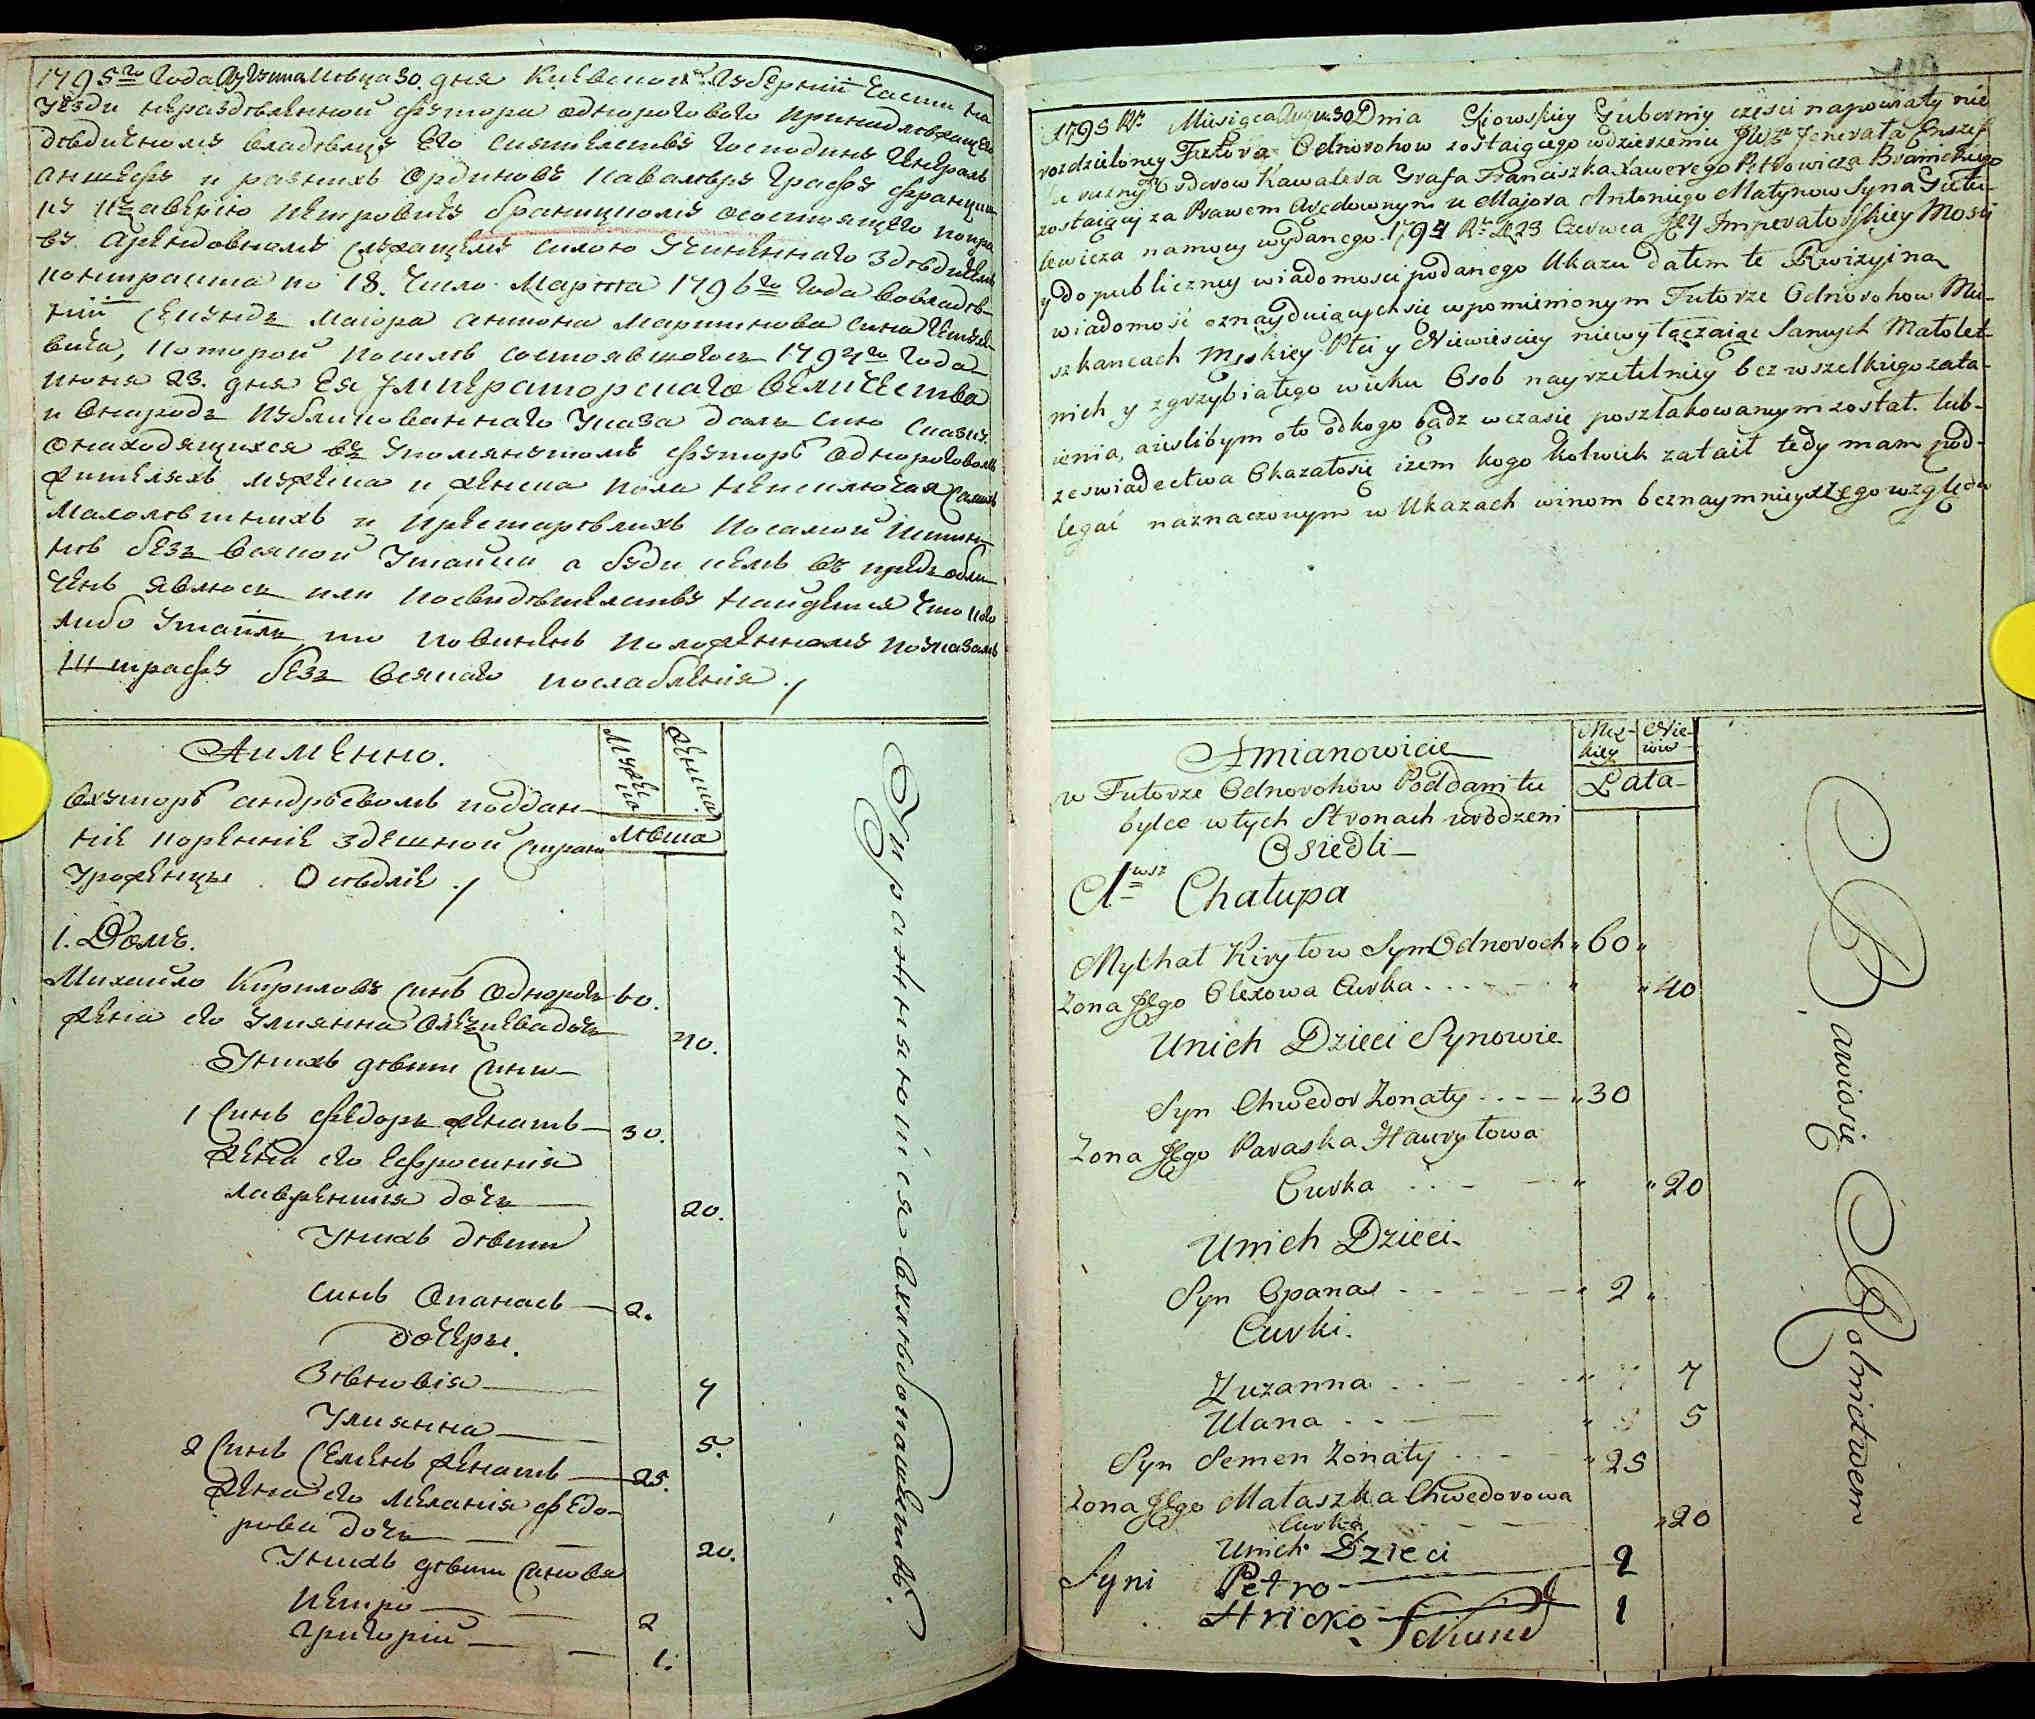 1795го Года Августа месяца 30. дня Киевской Губернии Части на
уезди неразделенной футора однорогового принадлежащего
дедичному владельцу Его сиятельству Господину Генералъ
аншефу и разнихъ Ординовъ Кавалеру Графу Францишку
Ксаверію Петровичу браницкому осостоящего поправу
Арендовномъ служащемъ силою учиненнаго здедичемъ
контракта по 18. Число Марта 1796го Года вовладе-
ніи Секундъ Маіора антона Мартинова сина
вича, Которой посиле состоявшагося 1794го Года
июня 23. дня Ея Императорскаго Величества
и Внародъ публикованнаго Указа далъ сию сказку
онаходящихся въ упомянутомъ футорѣ Однороговомъ
жителяхъ мужеска и женска пола неисключая самихъ
Малолетнихъ и престарелихъ посамой истин-
не безъ всякой утайки а буди кемъ въ предь обли-
ченъ явлюсь или посвидетелству найдется что кого
либо утаилъ то повиненъ положенному поуказамъ
штрафу безъ всякаго послабленія ./
Аименно.
Мужеска
женска
лета
Вхуторѣ андрѣевомъ поддан-
ніе кореннiе здешной страни
Уроженцы. Оседліе ./
1. Домъ.
Михайло Кириловъ синъ Однорогъ 60.
жена его Улиянна Олексiева дочь 40.
Унихъ дети сини
1 Синъ Федоръ женатъ 30.
жена его Ефросиния
лаврентия дочь 20.
Унихъ дети
синъ Опанасъ 2.
дочеры.
Зѣновія 7
Улиянна 5.
2 Синъ Семенъ женатъ 25.
жена его Мелания Федо-
рова дочь 20.
Унихъ дети синовя
Петро 2
Григорій 1.
Упражняютіся вхлебопашетве.
119
1795 Rо Miesiąca Augu: 30 Dnia Kiowskiey Guberniy części napowiaty nie
rozdzieloney Futora Odnorohow zostaiącego wdzierzeniu JWgo Jenerała Enszef
u rużnych Orderow Kawalera Grafa Franciszka Xawerego Petrowicza Branickiego
zostaiący za Prawem Arędownym u Majora Antoniego Matynow Syna Gutu-
lewicza namocy wydanego 1794 Ro D 23 Czerwca Jey Imperatorskiey Mości
y do publiczney wiadomości podanego Ukazu dałem te Rwizyina
wiadomość oznaydniących się wpomienionym Futorze Odnorohow Mie-
szkancach Męskiey Płci y Niewieściey niewyłączaiąc Samych Małolet-
nich y zgrzybiałego wieku Osob nayrzetelniey bez wszelkiego zata-
ienia, aieslibym oto odkogo bądz wczasie poszlakowanym został. lub-
ze swiadectwa Okazałosię izem kogo kolwiek zataił tedy mam pod-
legać naznaczonym w Ukazach winom beznaymnieyszego względu
Amianowicie
Męz-
kiey
Nie-
wie-
Lata
w Futorze Odnorohow Poddani tu
bylce wtych Stronach urodzeni
Osiedli
Awsz Chałupa
Mychał Kiryłow Syn Odnoroch „ 60 „
Zona Jego Olexowa Curka . . . „ „ 40
Unich Dzieci Synowie
Syn Chwedor Zonaty . . . „ 30
Zona Jego Paraska Hawryłowa
Curka . . . „ „ 20
Unich Dzieci
Syn Opanas . . . „ 2 „
Curki.
Zuzanna . . . „ 7
Ulana . . . „ 5
Syn Semen Zonaty . . . „ 25
Zona Jego Małaszka Chwedorowa
Curka „ 20
Unich Dzieci
Syni Petro 2
Hricko 1
Bawiosię Rolnictwem